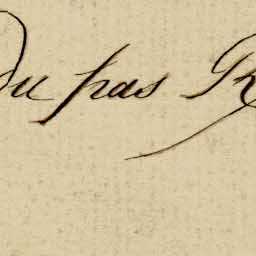 Du pas